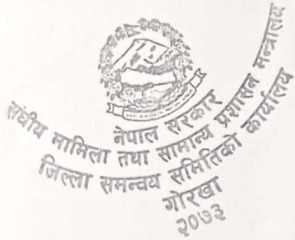 नेपाल सरकार
संघीय मामिला तथा सामान्य प्रशासन मन्त्रालय
जिल्ला समन्वय समितिको कार्यालय
गोरखा
२०७३